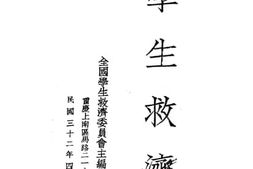 學生救濟
全國學生救濟委員會主編
重慶上南區馬路二一
民國三十二年四